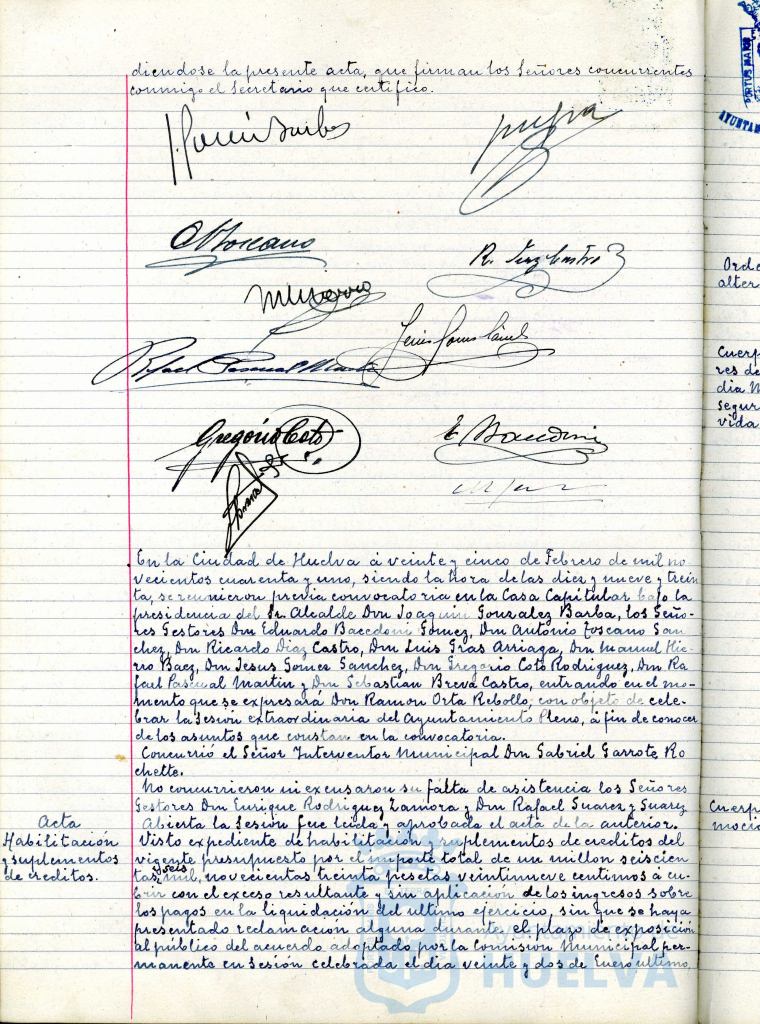 diendose la presente acta, que firman los Señores concurrentes
conmigo el Secretario que certifico.
R. Diaz Castro
Rafael Pascual Martin
Jesus Gomez Sanchez
Gregorio Coto
E. Baccdoni
En la Ciudad de Huelva á veinte y cinco de Febrero de mil no
vecientos cuarenta y uno, siendo la hora de las diez y nueve y trein
ta, se reunieron previa convocatoria en la Casa Capitular bajo la
presidencia del Sr. Alcalde Don Joaquin Gonzalez Barba, los Seño-
res Gestores Don Eduardo Bacedoni Gomez, Don Antonio Toscano San
chez, Don Ricardo Diaz Castro, Don Luis Gras Arriaga, Don Manuel Hie-
rro Baez, Don Jesus Gomez Sanchez, Don Gregorio Coto Rodriguez, Don Ra
fael Pascual Martin y Don Sebastian Breva Castro, entrando en el mo-
mento que se expresará Don Ramon Orta Rebollo, con objeto de cele-
brar la Sesión extraordinaria del Ayuntamiento Pleno, á fin de conocer
de los asuntos que constan en la convocatoria.
Concurrió el Señor Interventor Municipal Don Gabriel Garrote Ro
chette.
No concurrieron ni excusaron su falta de asistencia los Señores
Gestores Don Enrique Rodriguez Zamora y Don Rafael Suarez y Suarez
Abierta la Sesión fue leida y aprobada el acta de la anterior.
Acta
Habilitación
y suplementos
de creditos.
Visto expediente de habilitación y suplementos de creditos del
vigente presupuesto por el importe total de un millon seiscien
tas seis mil, novecientos treinta pesetas veintinueve centimos á cu-
brir con el exceso resultante y sin aplicación de los ingresos sobre
los pagos en la liquidación del ultimo ejercicio, sin que se haya
presentado reclamación alguna durante el plazo de exposición
al público del acuerdo adoptado por la Comisión Municipal per-
manente en Sesión celebrada el dia veinte y dos de Enero ultimo,
HUELVA
PORTUS MARIS
AYUNTAM
Orde
alter
Cuerp
res de
dia M
segur
vida
Cuerp
moció